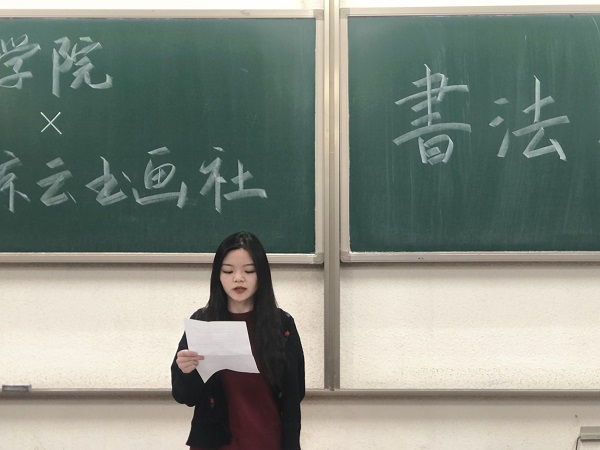 学院
×
云书画社
書法